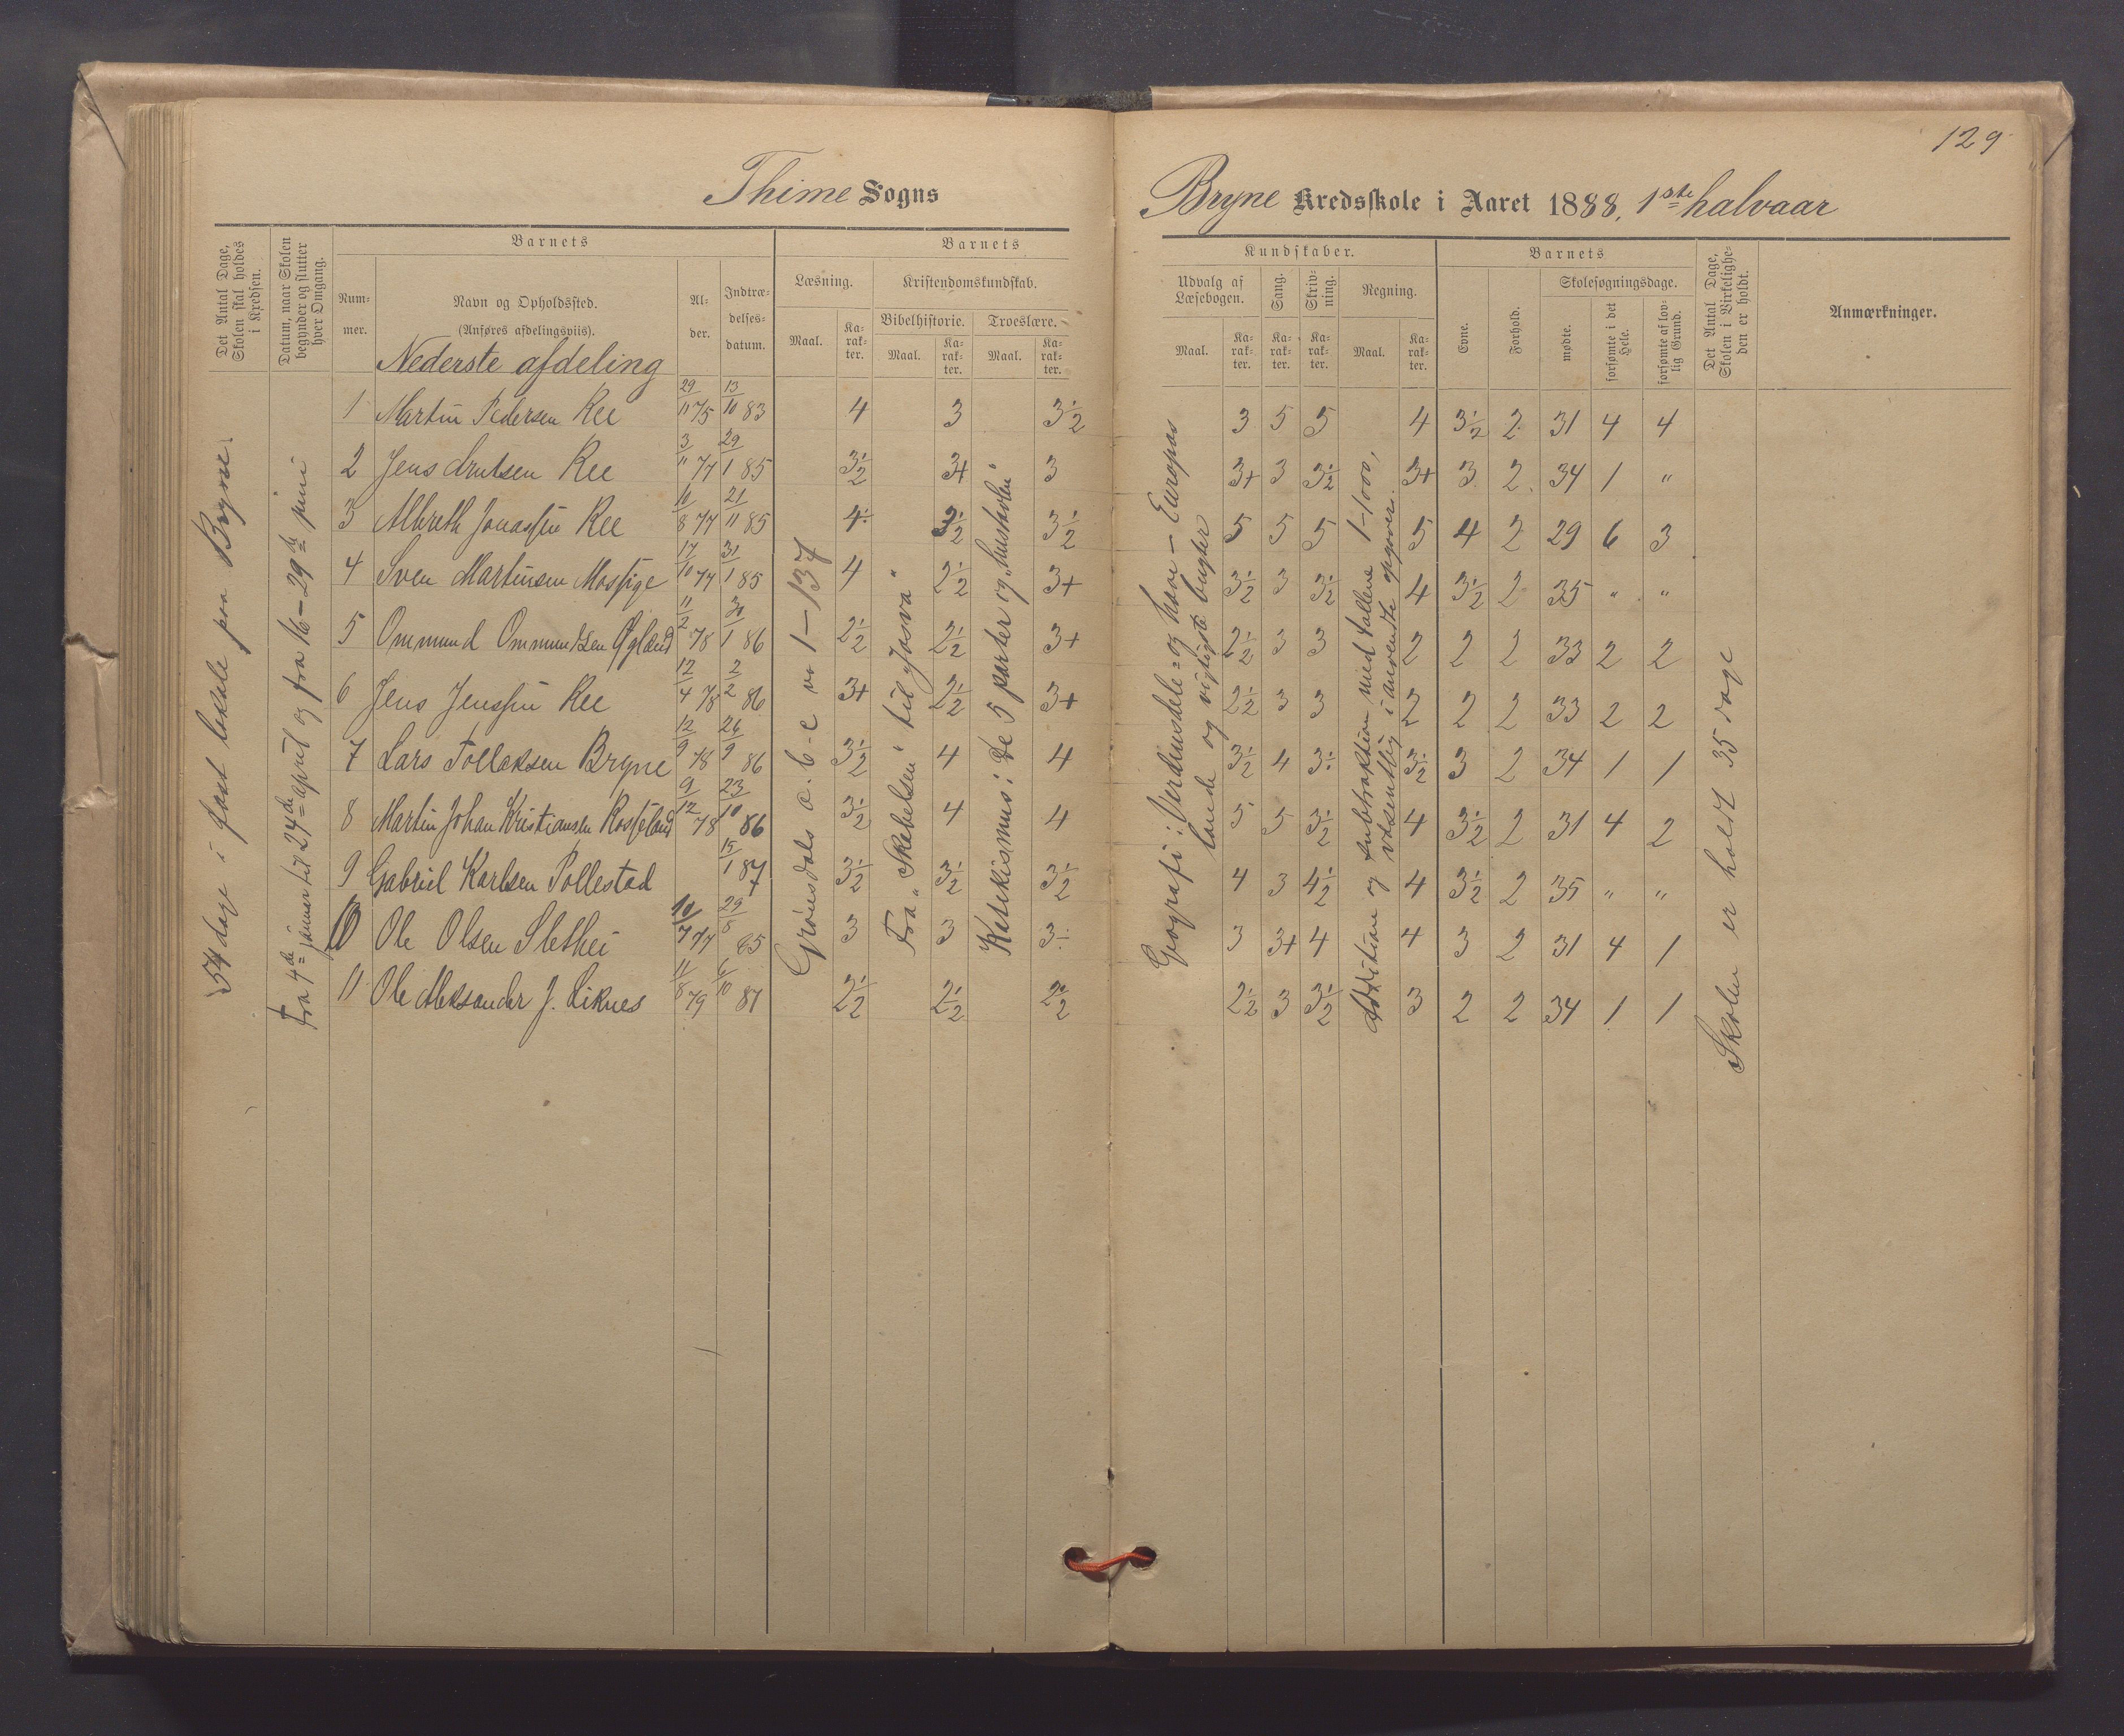 129
Thime Sogns
Bryne Kredsskole i Aaret 1888, 1ste halvaar
Det Antal Dage, Skolen skal holdes i Kredsen.
Datum, naar Skolen begynder og slutter hver Omgang.
Barnets
Nummer.
Navn og Opholdssted.
(Anføres afdelingsviis).
Alder.
Indtrædelsesdatum.
Barnets
Læsning.
Kristendomskundskab.
Bibelhistorie. Troeslære.
Maal. Karakter. Maal. Karakter. Maal. Karakter.
Kundskaber.
Udvalg af Læsebogen. Sang. Skrivning. Regning.
Maal. Karakter. Karakter. Karakter. Maal. Karakter.
Barnets
Evne. Forhold.
Skolesøgningsdage.
mødte. forsømte i det Hele. forsømte af lovlig Grund.
Det Antal Dage, Skolen i Virkeligheden er holdt.
Anmærkninger.
Nederste afdeling
54 dage i fast lokale paa Bryne.
Fra 4de januar til 24de april og fra 16–29de juni
Grønsdals a-b-c 1–137
Fra "Skabelsen" til "Josva"
Katekismus: De 5 parter og "hustavlen"
Geografi: Verdensdele= og have – Europas lande og vigtigste bugter
Addition og subtraktion med tallene 1–1000, væsentlig i anvendte opgaver.
Skolen er holdt 35 dage
1 Martin Pedersen Ree 29/11 75 13/10 83 4 3 3½ 3 5 5 4 3½ 2 31 4 4
2 Jens Ree 3/11 77 29/1 85 3½ 3+ 3 3+ 3 3½ 3+ 3 2 34 1 "
3 Albreth Jonassen Ree 10/8 77 21/11 85 4÷ 3½ 3½ 5 5 5 5 4 2 29 6 3
4 Sven Martinsen Mossige 17/10 77 31/1 85 4 2½ 3+ 3½ 3 3½ 4 3½ 2 35 " "
5 Ommund Ommundsen Øgland 11/2 78 30/1 86 2½ 2½ 3+ 2½ 3 3 2 2 2 33 2 2
6 Jens Jenssen Ree 12/4 78 2/2 86 3+ 2½ 3+ 2½ 3 3 2 2 2 33 2 2
7 Lars Tollaksen Bryne 12/9 78 26/9 86 3½ 4 4 3½ 4 3÷ 3½ 3 2 34 1 1
8 Martin Johan Kristiansen Rosseland 9/12 78 23/10 86 3½ 4 4 5 5 3½ 4 3½ 2 31 4 2
9 Gabriel Karlsen Pollestad 15/1 87 3½ 3½ 3½ 4 3 4½ 4 3½ 2 35 " "
10 Ole Olsen Slethei 10/7 77 29/8 85 3 3 3÷ 3 3+ 4 4 3 2 31 4 1
11 Ole Aleksander J. Liknes 11/8 79 6/10 87 2½ 2½ 2½ 2½ 3 3½ 3 2 2 34 1 1